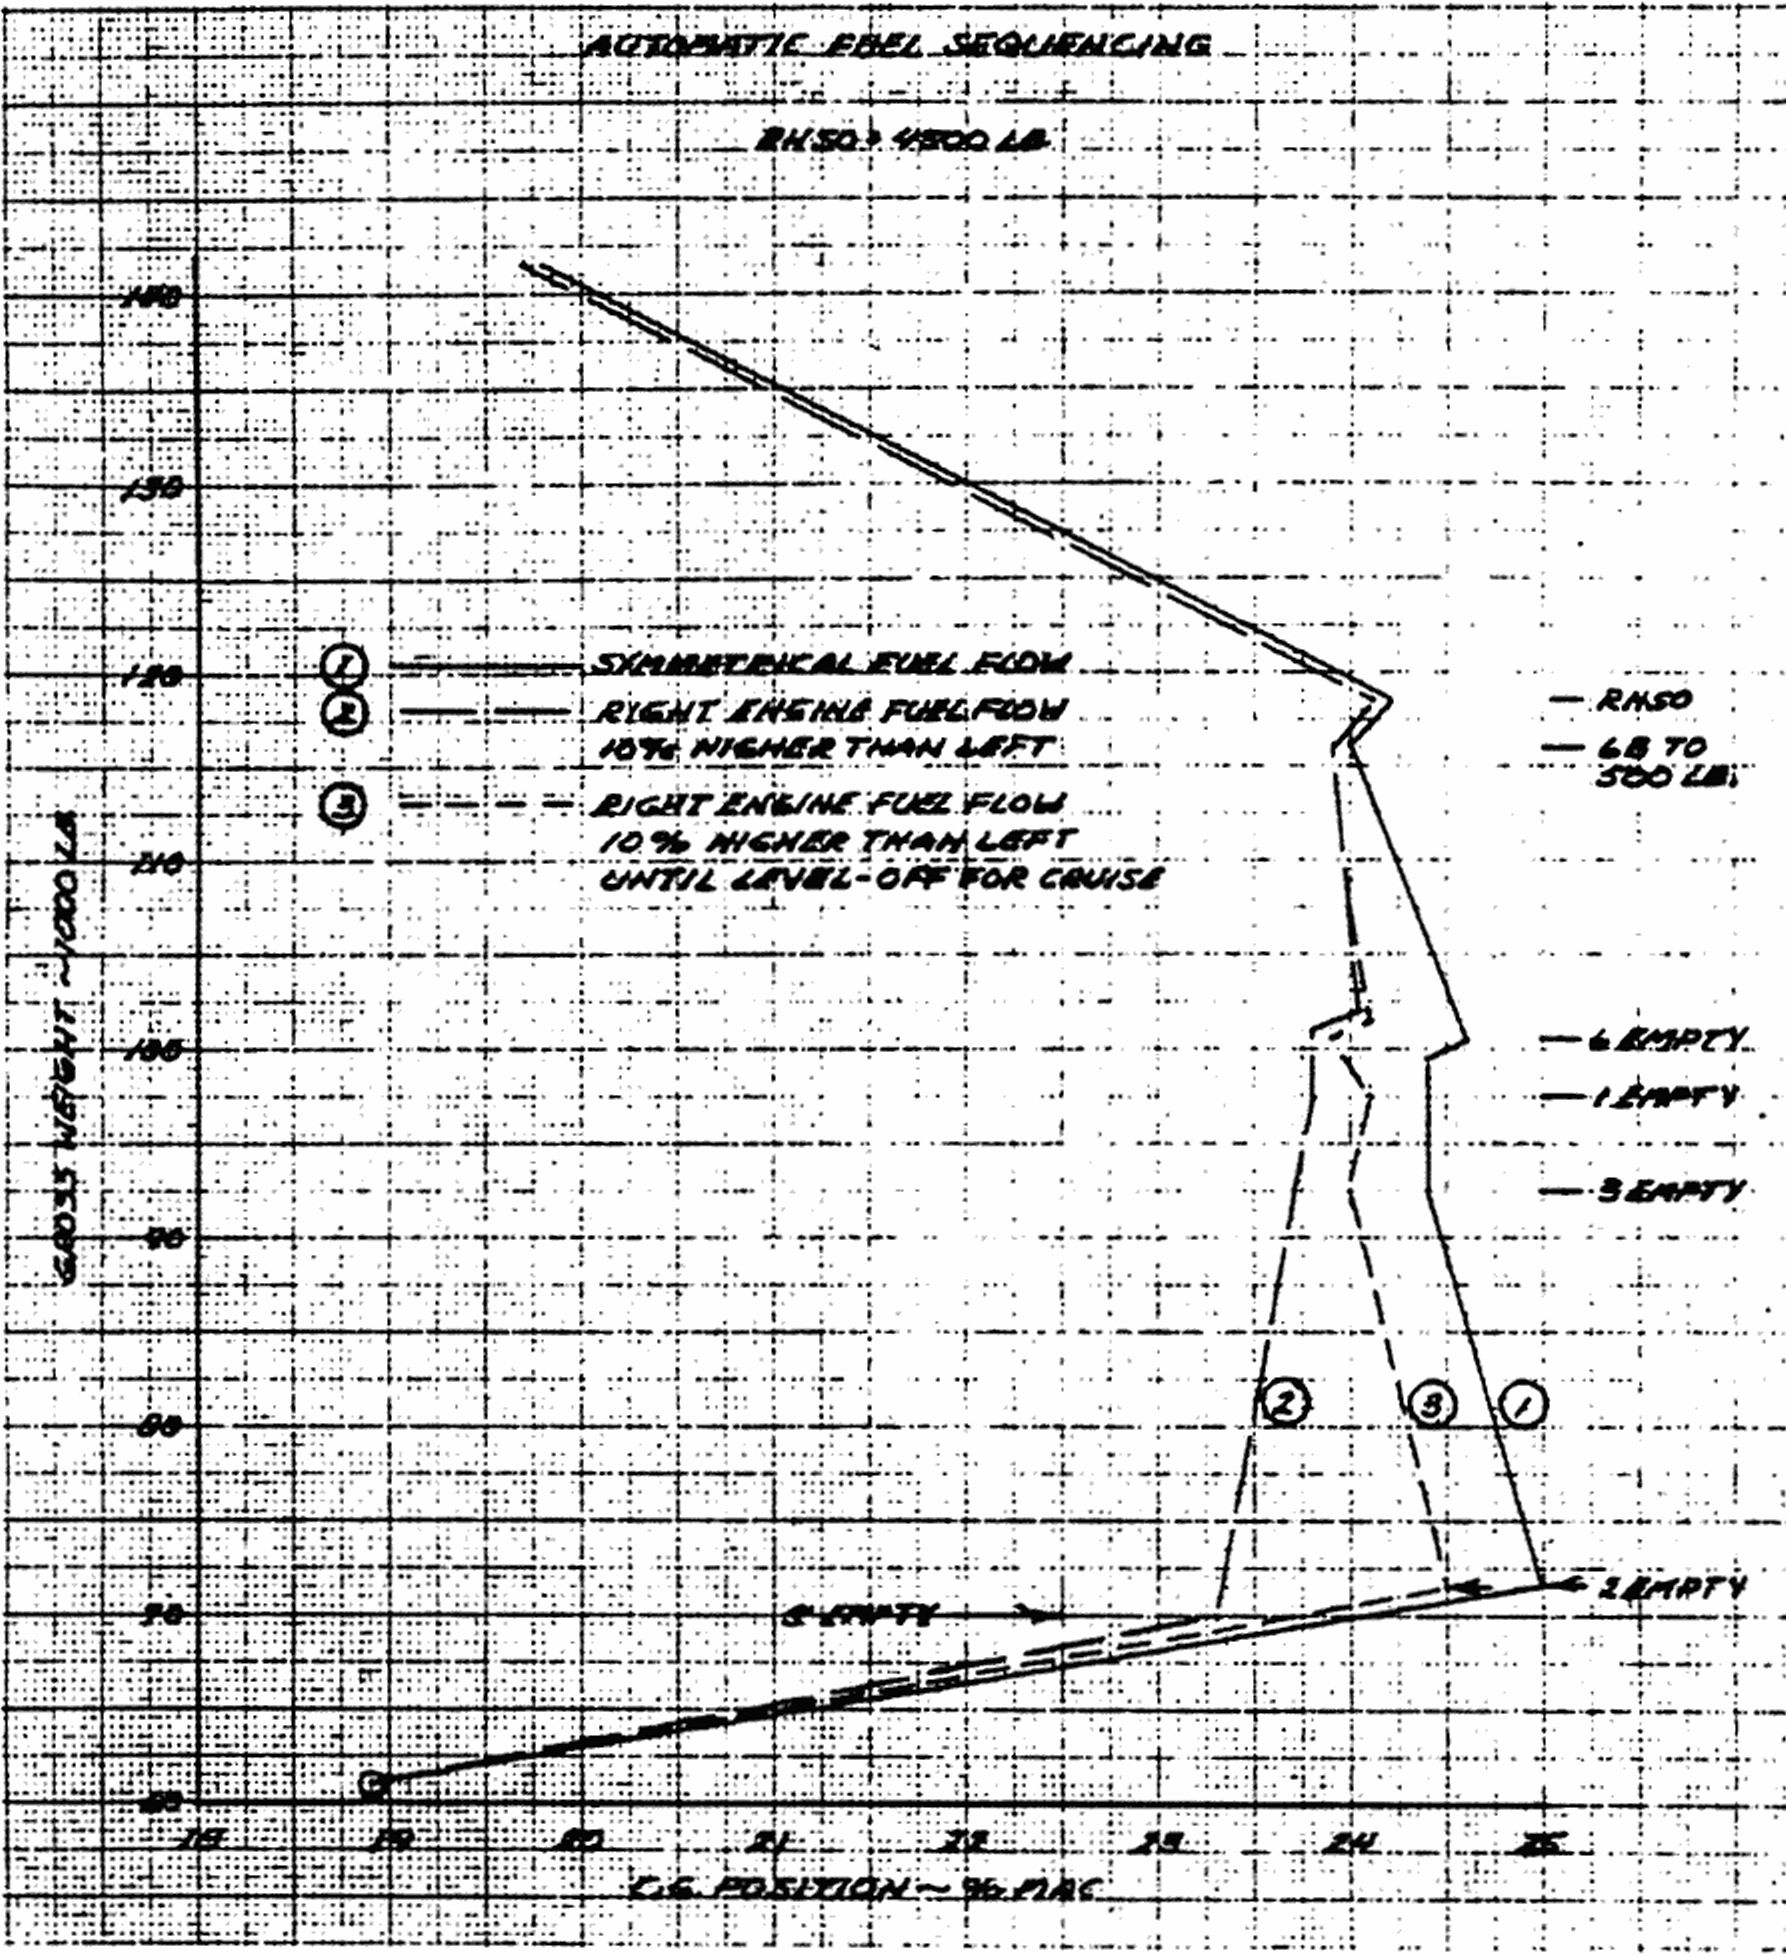 AUTOMATIC FUEL SEQUENCING
RHSO > 4500 LB
140
130
120
110
100
90
80
70
60
GROSS WEIGHT ~ 1000 LB
1 SYMMETRICAL FUEL FLOW
2 RIGHT ENGINE FUEL FLOW
10% HIGHER THAN LEFT
3 RIGHT ENGINE FUEL FLOW
10% HIGHER THAN LEFT
UNTIL LEVEL-OFF FOR CRUISE
RHSO
6B TO
500 LB.
6 EMPTY
1 EMPTY
3 EMPTY
2 3 1
2 EMPTY
5 EMPTY
18 19 20 21 22 23 24 25
C.G. POSITION ~ % MAC